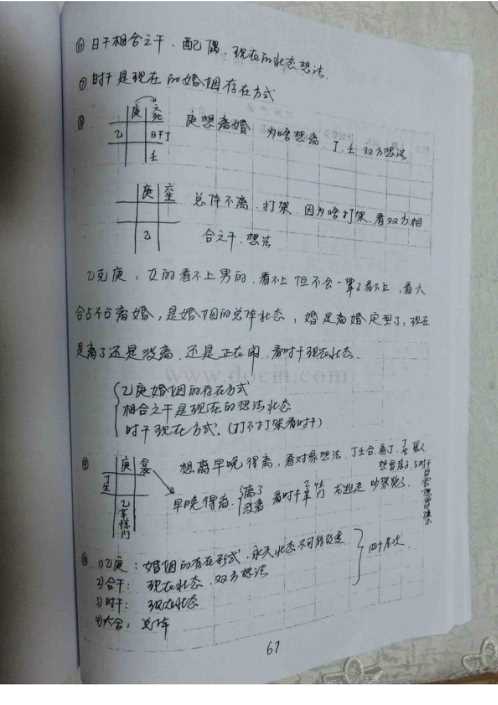 ⑥日干相合之干、配偶、现在的状态想法.
⑦时干是现在的婚姻存在方式
⑧ 庚 死
乙 日干丁
壬
庚想离婚 为啥想离 丁.壬 双方想法
庚 六
乙
总体不离.打架.因为啥打架.看双方相
合之干.想法
乙克庚,女的看不上男的,看不上但不会一辈子看不上,看六
合占不占离婚,是婚姻的总体状态,婚是离婚定型了,现在
是离了还是没离、还是正在闹,看时干现在状态.
www.docin.com
乙庚婚姻的存在方式
相合之干是现在的想法状态
时干现在方式.(打不打架看时干)
庚
丁
乙
门
想离早晚得离,看对象想法,丁壬合.看丁.
早晚得离. 离了 看时干 吵架
①乙庚:婚姻的存在形式.永久状态不可改变
2)合干: 现在状态、双方想法
3)时干: 现在状态
4)六合: 总体
四个层次.
67